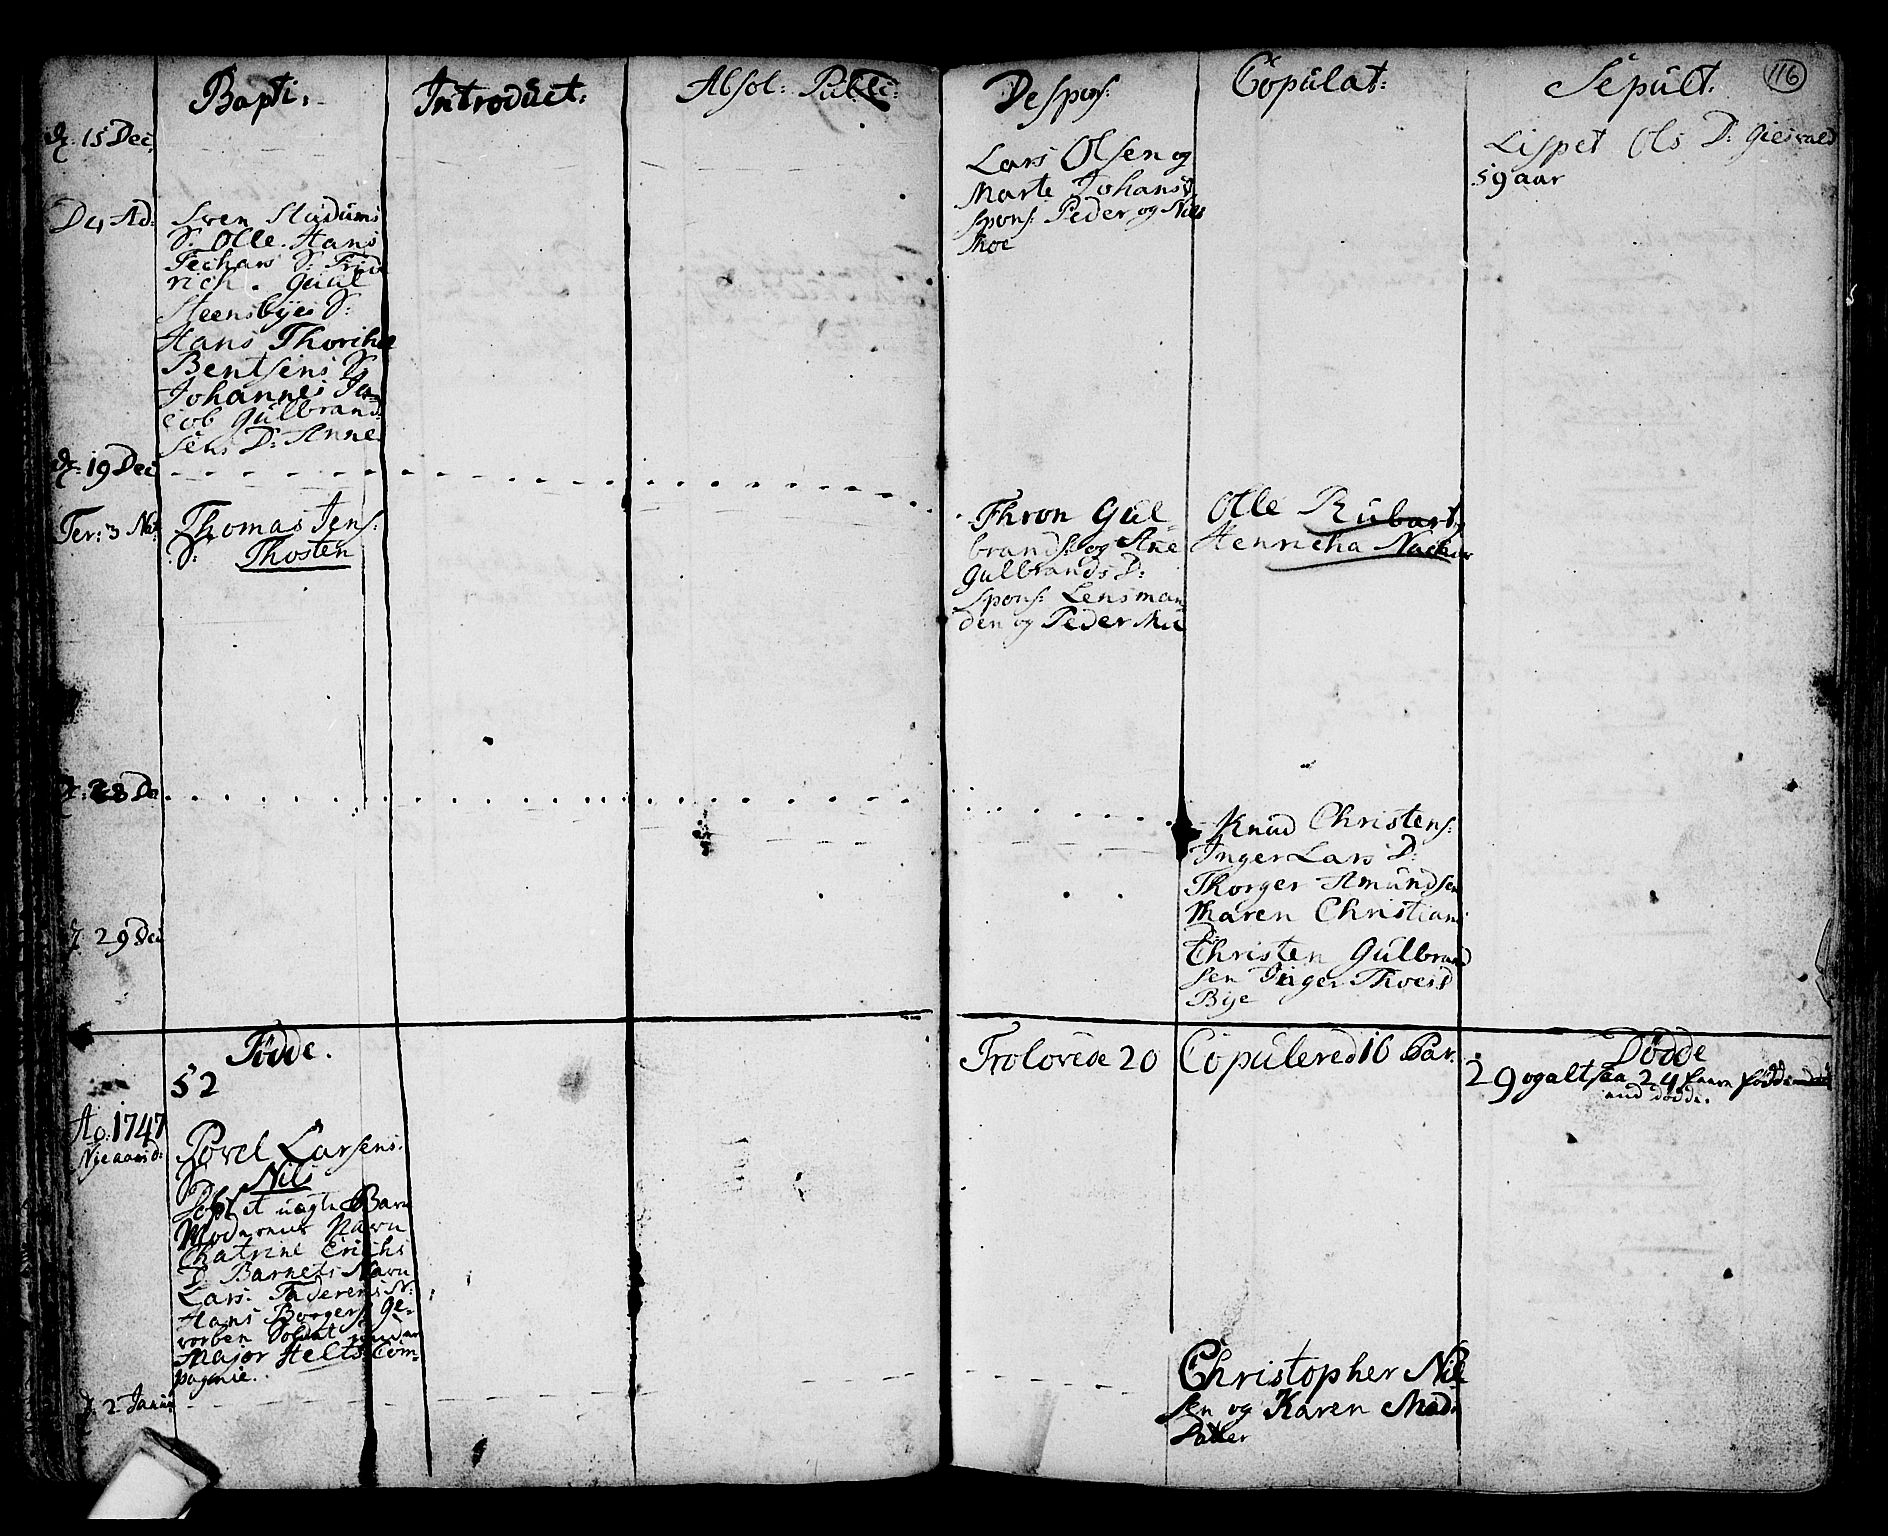 Bapti.
Introduct:
Absol: Publi:
Despons:
Copulat:
Sepult.
116
d. 15 Dec.
Lars Olsen og
Marte Johans D.
spons: Peder og Nils
Moe
Lispet Ols D:
59 aar
D 4 Ad:
Sven Stadums
S. Olle. Hans
S: Fride
rich.
Steensbyes S:
Hans
Bentsens S.
Johannes Ja
cob Gulbrand
sens D: Anne
d. 19 Dec
Ter: 3 Nat
Thomas Jens:
S: Thosten
Thron Gul
brands: og Ane
Gulbrands D:
spons: Lensman
den og Peder Mu
Olle Rubart
Henricha
d: 28 De
Knud Christens:
Inger Lars D:
Thorger Amundsen
Maren Christians
D:
d. 29 Dec
Christen Gulbrand
sen Inger
Bye
Fødde.
52
Trolovede 20
Copulered 16 Par.
Dødde
29 og altsaa 24 fleere fødde
end dødde.
Ao. 1747
Nye aars d:
Povel Larsens.
S. Nils
et uægte Barn
Moderens Navn
Chatrine Erichs
D Barnets Navn
Lars. Faderens N:
Hans Borgers: Ge-
vorben Soldat under
Major Helts Com-
pagnie.
d. 2 Janu
Christopher Nil
sen og Karen Mads
Datter